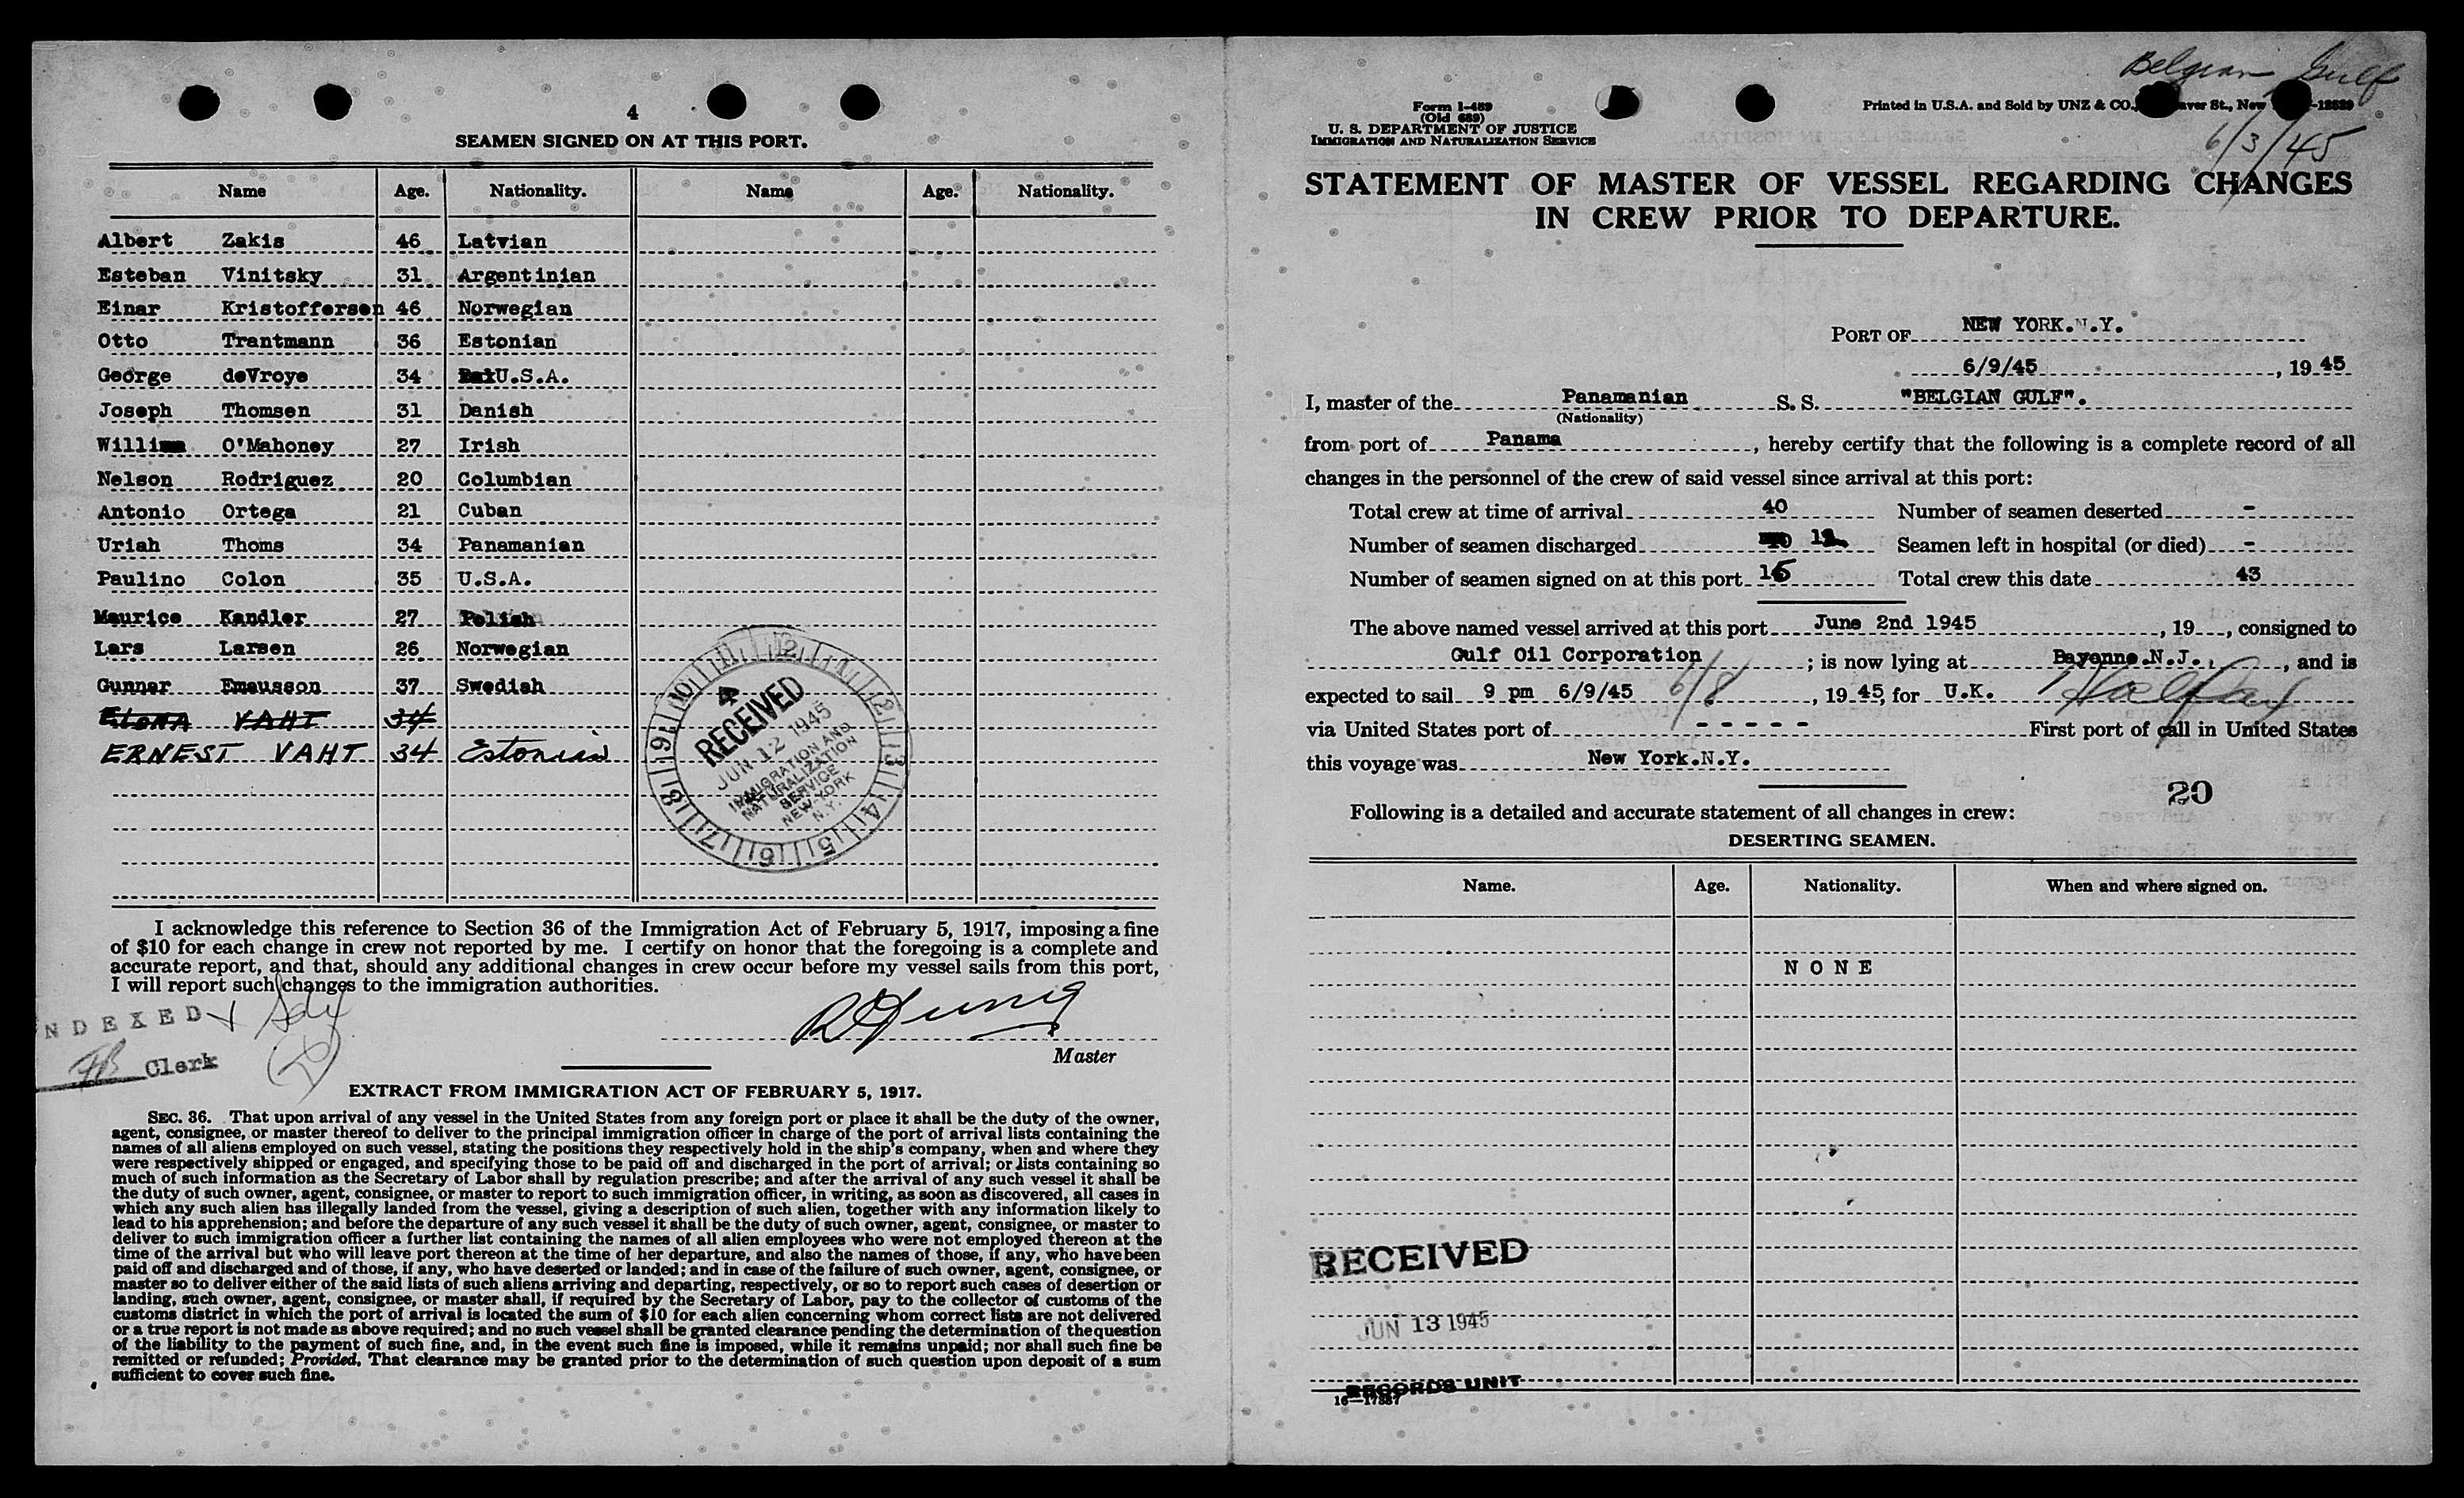 4
SEAMEN SIGNED ON AT THIS PORT.
Name Age. Nationality. Name Age. Nationality.
Albert Zakis 46 Latvian
Esteban Vinitsky 31 Argentinian
Einar Kristoffersen 46 Norwegian
Otto Trantmann 36 Estonian
George deVroye 34 U.S.A.
Joseph Thomsen 31 Danish
William O'Mahoney 27 Irish
Nelson Rodriguez 20 Columbian
Antonio Ortega 21 Cuban
Uriah Thoms 34 Panamanian
Paulino Colon 35 U.S.A.
Maurice Kandler 27 Polish
Lars Larsen 26 Norwegian
Gunnar Emausson 37 Swedish
VAHT 34
ERNEST VAHT 34 Estonian
12 1 2 3 4 5 6 7 8 9 10 11
4
RECEIVED
JUN 12 1945
IMMIGRATION AND
NATURALIZATION
SERVICE
NEW-YORK
N.Y.
I acknowledge this reference to Section 36 of the Immigration Act of February 5, 1917, imposing a fine
of $10 for each change in crew not reported by me. I certify on honor that the foregoing is a complete and
accurate report, and that, should any additional changes in crew occur before my vessel sails from this port,
I will report such changes to the immigration authorities.
NDEXED
Clerk
Master
EXTRACT FROM IMMIGRATION ACT OF FEBRUARY 5, 1917.
SEC. 36. That upon arrival of any vessel in the United States from any foreign port or place it shall be the duty of the owner,
agent, consignee, or master thereof to deliver to the principal immigration officer in charge of the port of arrival lists containing the
names of all aliens employed on such vessel, stating the positions they respectively hold in the ship's company, when and where they
were respectively shipped or engaged, and specifying those to be paid off and discharged in the port of arrival; or lists containing so
much of such information as the Secretary of Labor shall by regulation prescribe; and after the arrival of any such vessel it shall be
the duty of such owner, agent, consignee, or master to report to such immigration officer, in writing, as soon as discovered, all cases in
which any such alien has illegally landed from the vessel, giving a description of such alien, together with any information likely to
lead to his apprehension; and before the departure of any such vessel it shall be the duty of such owner, agent, consignee, or master to
deliver to such immigration officer a further list containing the names of all alien employees who were not employed thereon at the
time of the arrival but who will leave port thereon at the time of her departure, and also the names of those, if any, who have been
paid off and discharged and of those, if any, who have deserted or landed; and in case of the failure of such owner, agent, consignee, or
master so to deliver either of the said lists of such aliens arriving and departing, respectively, or so to report such cases of desertion or
landing, such owner, agent, consignee, or master shall, if required by the Secretary of Labor, pay to the collector of customs of the
customs district in which the port of arrival is located the sum of $10 for each alien concerning whom correct lists are not delivered
or a true report is not made as above required; and no such vessel shall be granted clearance pending the determination of the question
of the liability to the payment of such fine, and, in the event such fine is imposed, while it remains unpaid; nor shall such fine be
remitted or refunded; Provided, That clearance may be granted prior to the determination of such question upon deposit of a sum
sufficient to cover such fine.
Belgian Gulf
6/3/45
Form I-489
(Old 689)
U. S. DEPARTMENT OF JUSTICE
IMMIGRATION AND NATURALIZATION SERVICE
Printed in U.S.A. and Sold by UNZ & CO., aver St., New -12529
STATEMENT OF MASTER OF VESSEL REGARDING CHANGES
IN CREW PRIOR TO DEPARTURE.
PORT OF NEW YORK.N.Y.
6/9/45, 19 45
I, master of the Panamanian S. S. "BELGIAN GULF".
(Nationality)
from port of Panama, hereby certify that the following is a complete record of all
changes in the personnel of the crew of said vessel since arrival at this port:
Total crew at time of arrival 40 Number of seamen deserted -
Number of seamen discharged 12 Seamen left in hospital (or died) -
Number of seamen signed on at this port 15 Total crew this date 43
The above named vessel arrived at this port June 2nd 1945, 19, consigned to
Gulf Oil Corporation; is now lying at Bayonne.N.J., and is
expected to sail 9 pm 6/9/45 6/8, 19 45, for U.K. Halifax
via United States port of - - - - - First port of call in United States
this voyage was New York.N.Y.
20
Following is a detailed and accurate statement of all changes in crew:
DESERTING SEAMEN.
Name. Age. Nationality. When and where signed on.
NONE
RECEIVED
JUN 13 1945
RECORDS UNIT
16—17887